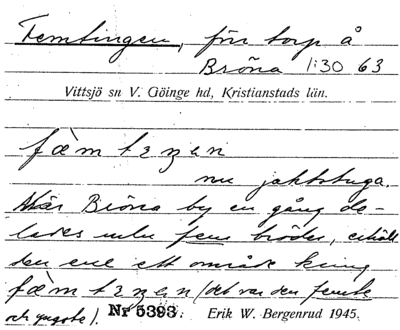 Femtingen, förr torp å
Bröna 1:30 63
Vittsjö sn V. Göinge hd, Kristianstads län.
fæmtɪŋen
nu jaktstuga.
När Bröna by en gång de-
lades mln fem bröder, erhöll
den ene ett område kring
fæmtɪŋen (det var den femte
och yngste).
Nr 5393. Erik W. Bergenrud 1945.